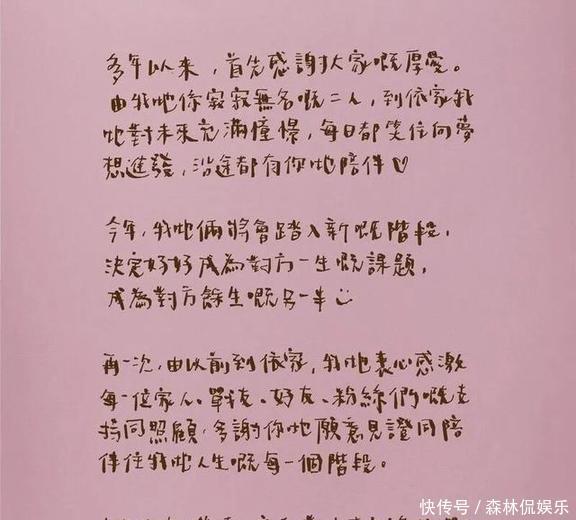 多年以來，首先感謝大家嘅厚愛。
由我哋係寂寂無名嘅二人，到依家我
哋對未來充滿憧憬，每日都笑住向夢
想進發，沿途都有你哋陪伴♡
今年，我哋倆將會踏入新嘅階段，
決定好好成為對方一生嘅課題，
成為對方餘生嘅另一半
再一次，由以前到依家，我哋衷心感激
每一位家人、戰友、好友、粉絲們嘅支
持同照顧，多謝你哋願意見證同陪
伴住我哋人生嘅每一個階段。
快传号／森林侃娱乐